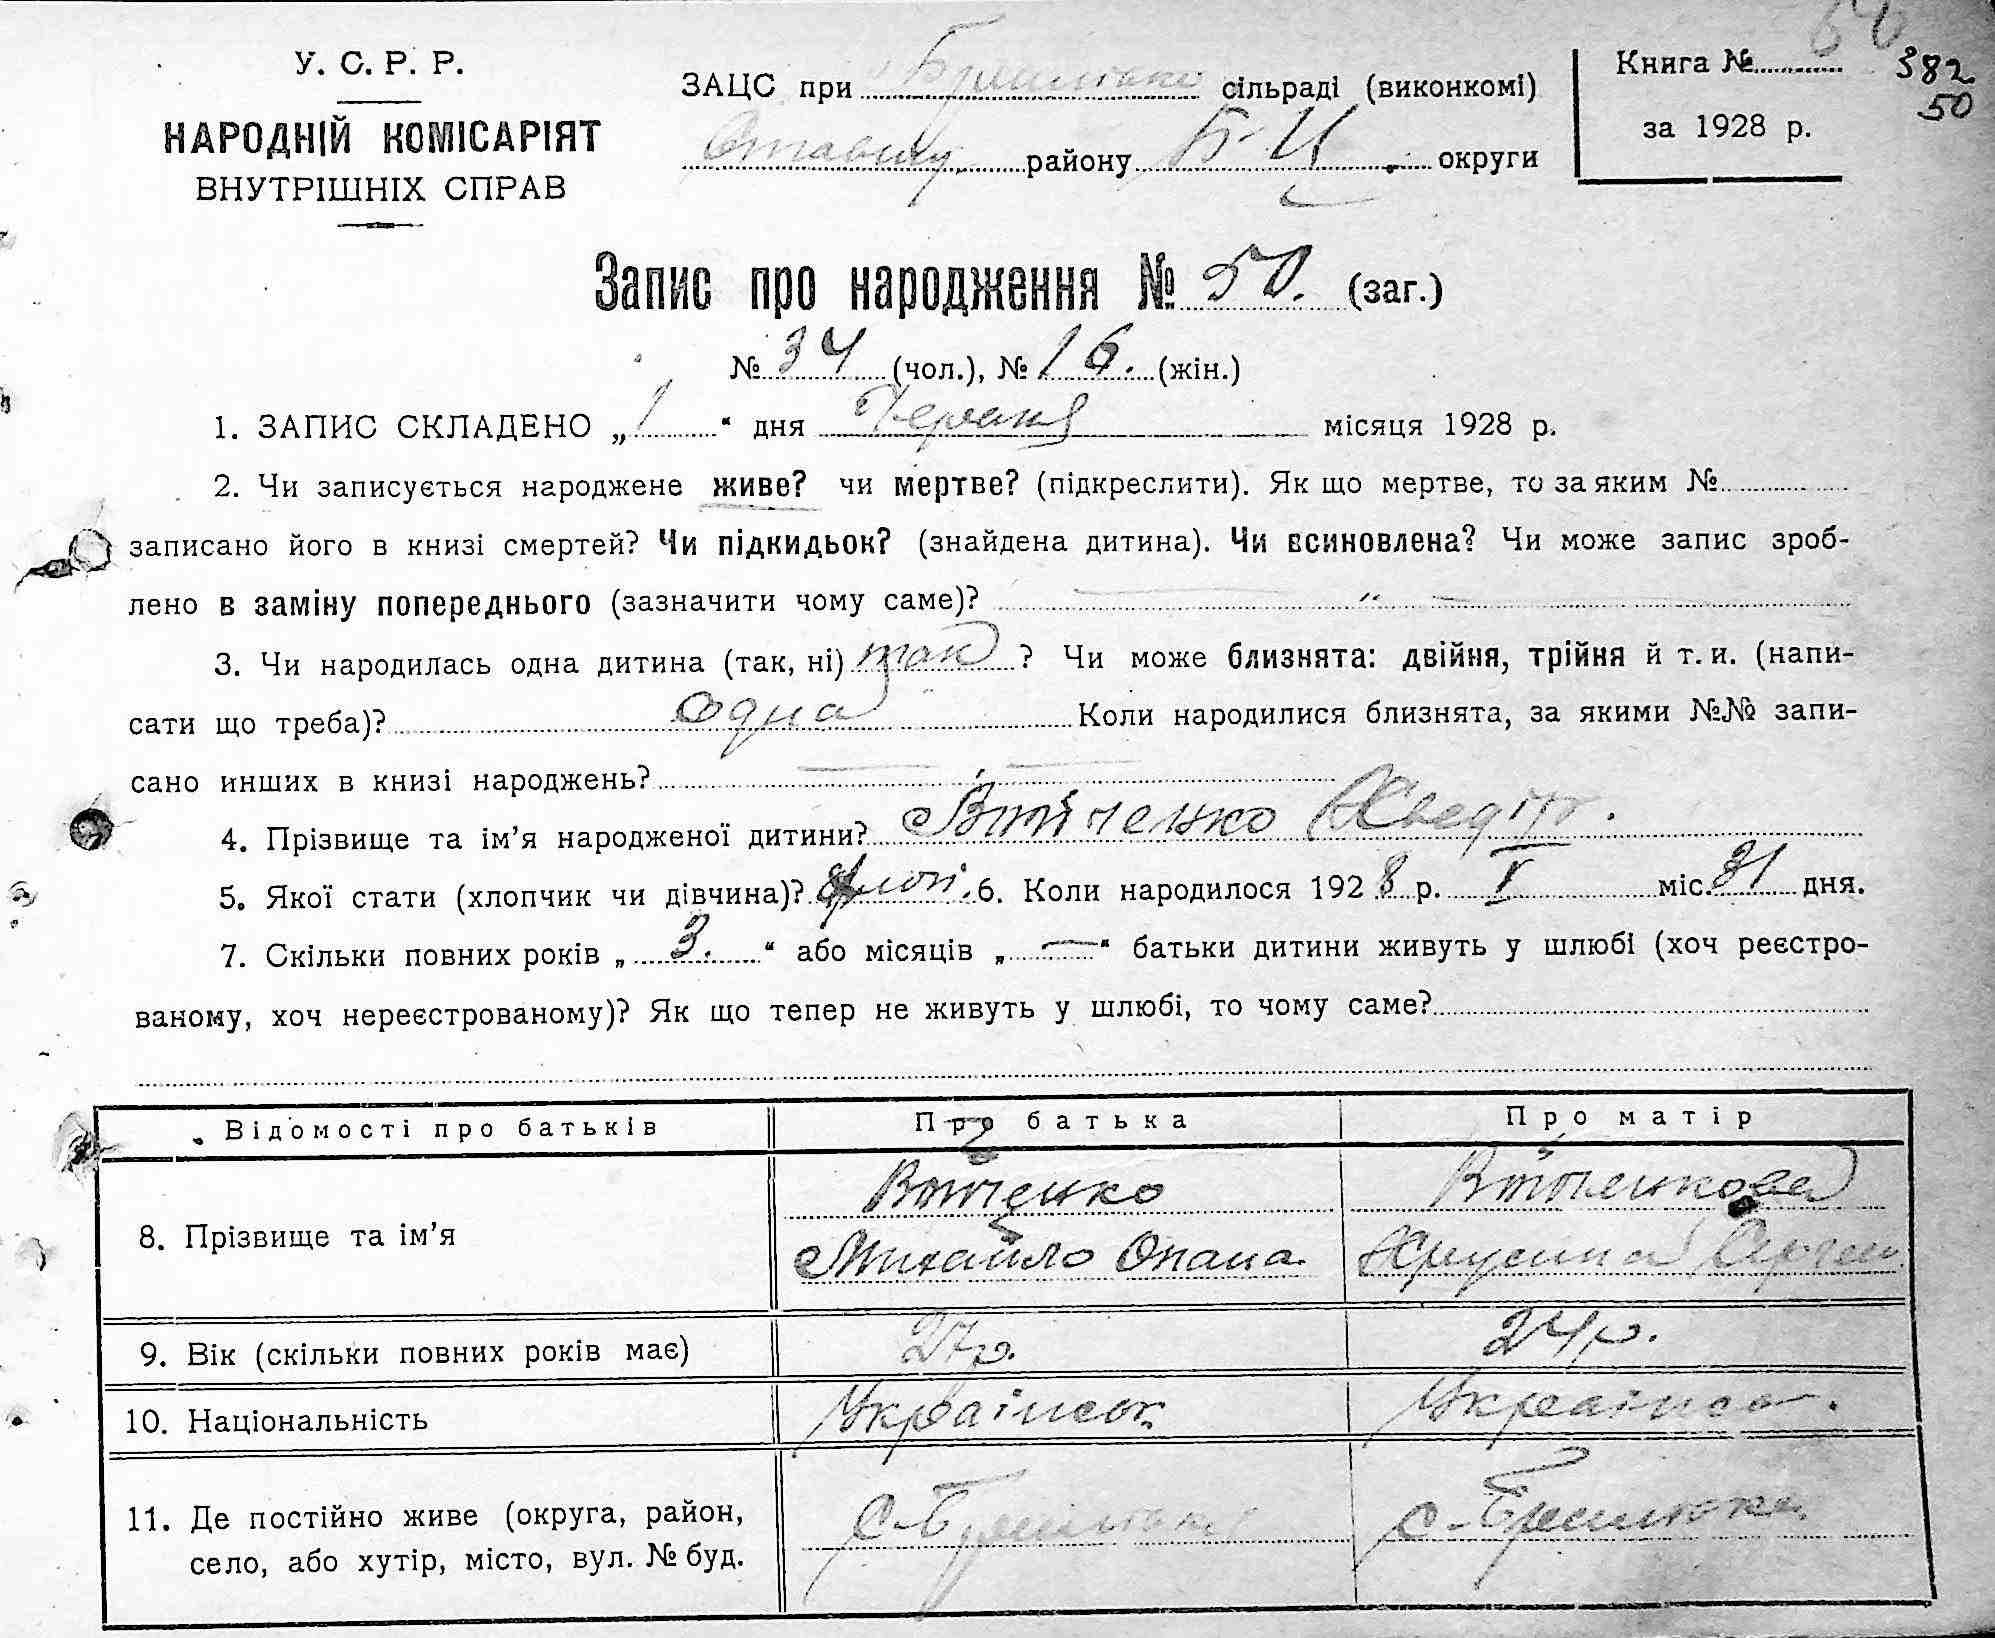 У. С. Р. Р.
НАРОДНІЙ КОМІСАРІЯТ
ВНУТРІШНІХ СПРАВ
ЗАЦС при сільраді (виконкомі)
району Б-Ц. округи
Книга №
за 1928 р.
382
50
Запис про народження № 50. (заг.)
№ 34 (чол.), № 16. (жін.)
1. ЗАПИС СКЛАДЕНО „1“ дня Червня місяця 1928 р.
2. Чи записується народжене живе? чи мертве? (підкреслити). Як що мертве, то за яким №
записано його в книзі смертей? Чи підкидьок? (знайдена дитина). Чи всиновлена? Чи може запис зроб-
лено в заміну попереднього (зазначити чому саме)? — „ —
3. Чи народилась одна дитина (так, ні) так ? Чи може близнята: двійня, трійня й т. и. (напи-
сати що треба)? одна Коли народилися близнята, за якими №№ запи-
сано инших в книзі народжень?
4. Прізвище та ім’я народженої дитини?
5. Якої стати (хлопчик чи дівчина)? хлоп. 6. Коли народилося 1928 р. V міс. 31 дня.
7. Скільки повних років „3.“ або місяців „—“ батьки дитини живуть у шлюбі (хоч реєстро-
ваному, хоч нереєстрованому)? Як що тепер не живуть у шлюбі, то чому саме?
Відомості про батьків Про батька Про матір
8. Прізвище та ім’я
Михайло Опана.
9. Вік (скільки повних років має) 27р. 24р.
10. Національність Українськ
11. Де постійно живе (округа, район,
село, або хутір, місто, вул. № буд.